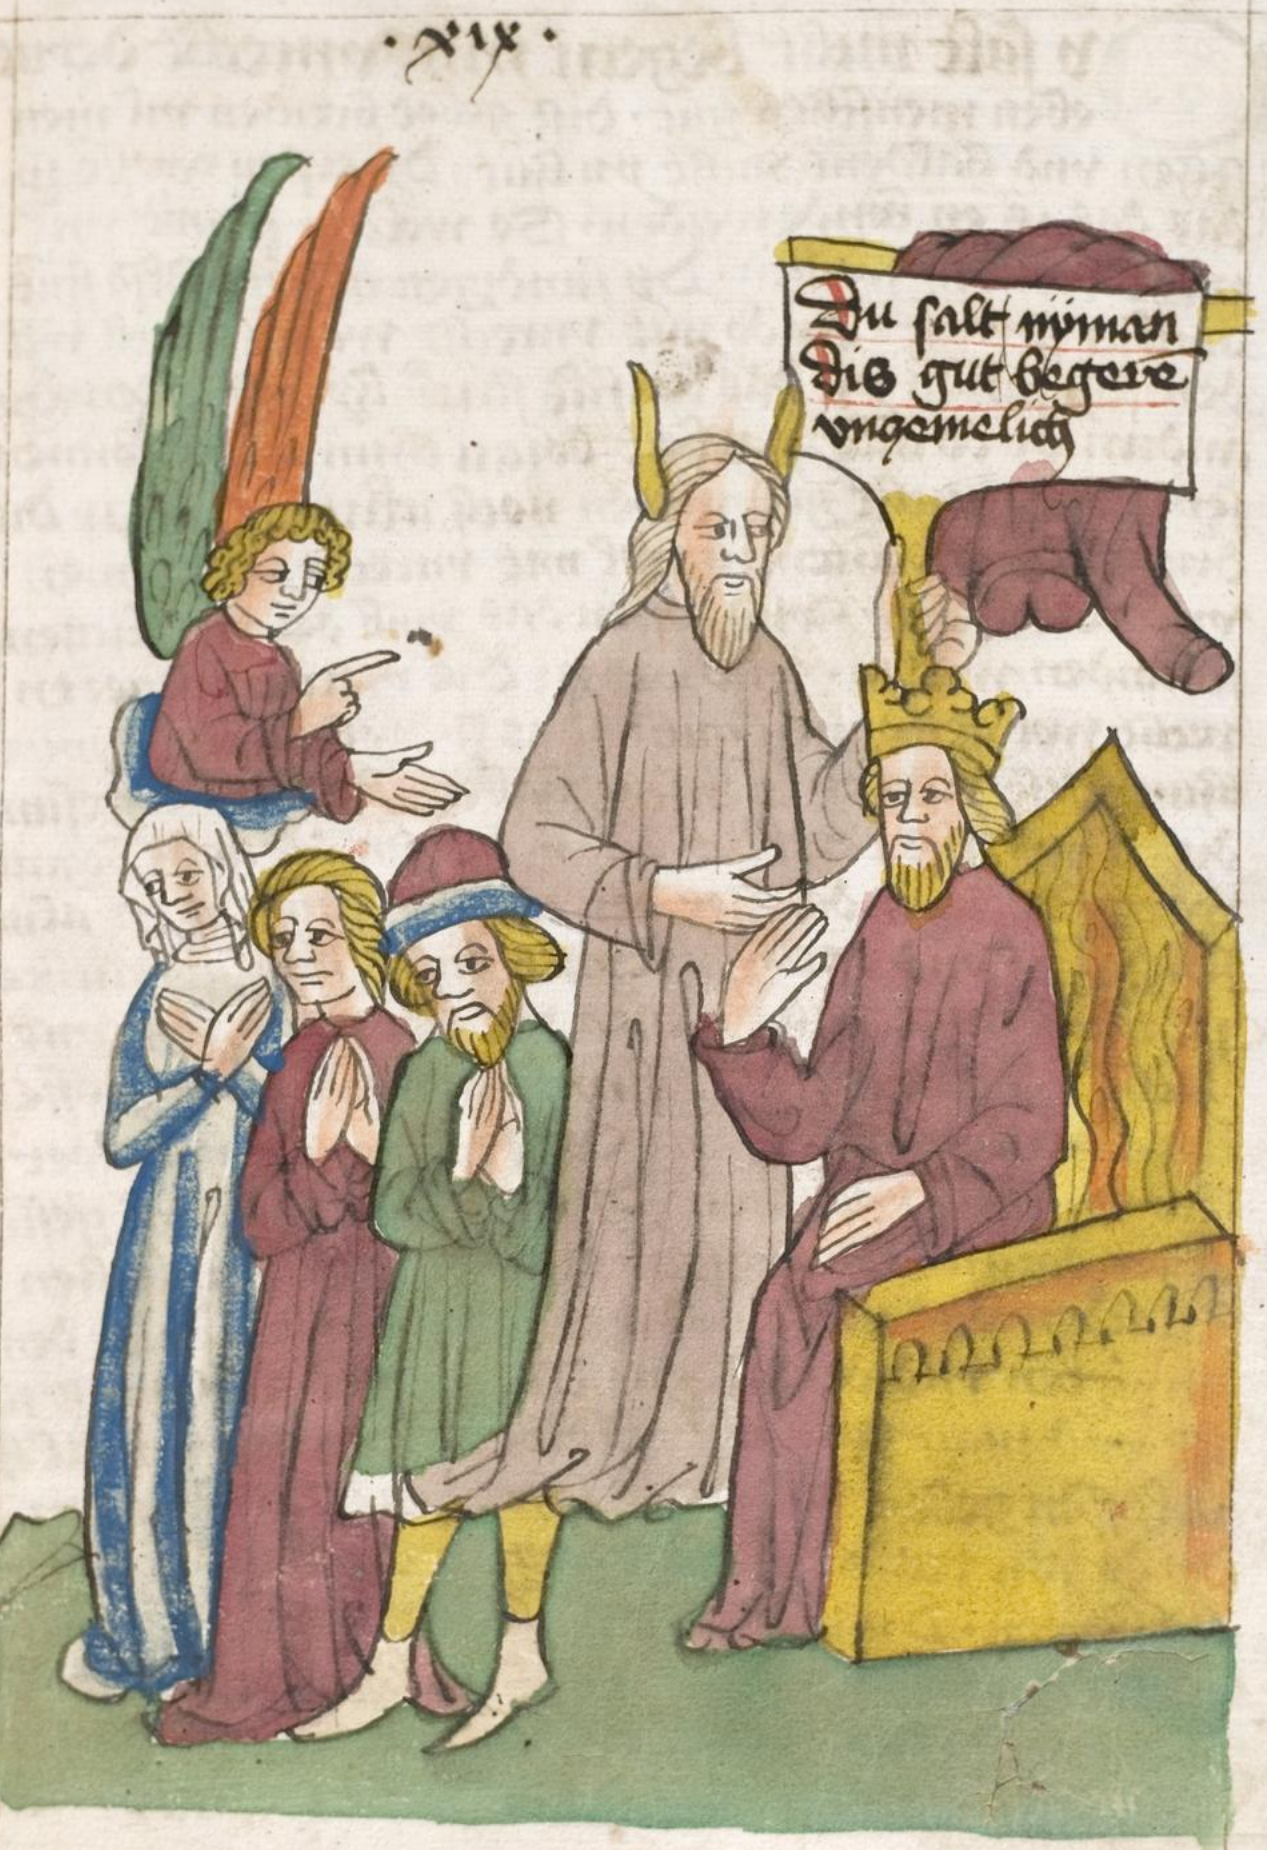 ·xix·
Du salt nÿman
dis gut begere
vngemelich